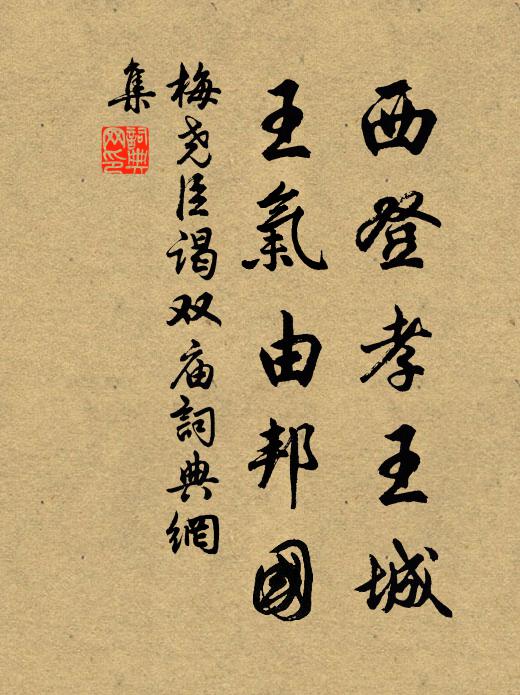 西登孝王城
王氣由邦國
梅尧臣谒双庙詞典網
集
詞典
网印